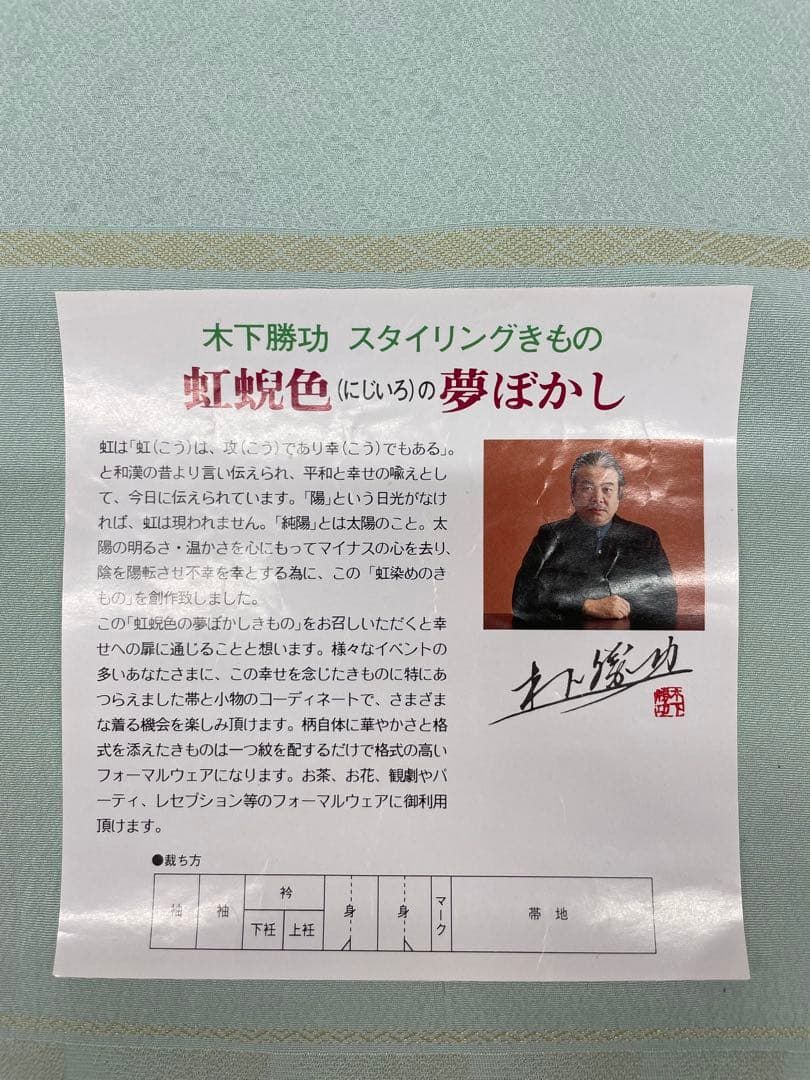 木下勝功 スタイリングきもの
虹蜺色(にじいろ)の夢ぼかし
虹は「虹(こう)は、攻(こう)であり幸(こう)でもある」。
と和漢の昔より言い伝えられ、平和と幸せの喩えとし
て、今日に伝えられています。「陽」という日光がなけ
れば、虹は現われません。「純陽」とは太陽のこと。太
陽の明るさ・温かさを心にもってマイナスの心を去り、
陰を陽転させ不幸を幸とする為に、この「虹染めのき
もの」を創作致しました。
この「虹蜺色の夢ぼかしきもの」をお召しいただくと幸
せへの扉に通じることと想います。様々なイベントの
多いあなたさまに、この幸せを念じたきものに特にあ
つらえました帯と小物のコーディネートで、さまざま
な着る機会を楽しみ頂けます。柄自体に華やかさと格
式を添えたきものは一つ紋を配するだけで格式の高い
フォーマルウェアになります。お茶、お花、観劇やパ
ーティ、レセプション等のフォーマルウェアに御利用
頂けます。
木下勝功
木下勝功
●裁ち方
袖 袖 衿 身 身 マーク 帯地
下衽 上衽